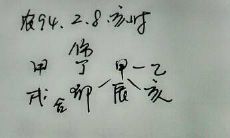 农94.2.8.亥时
伤
甲 丁 甲一乙
戌合卯 辰 亥